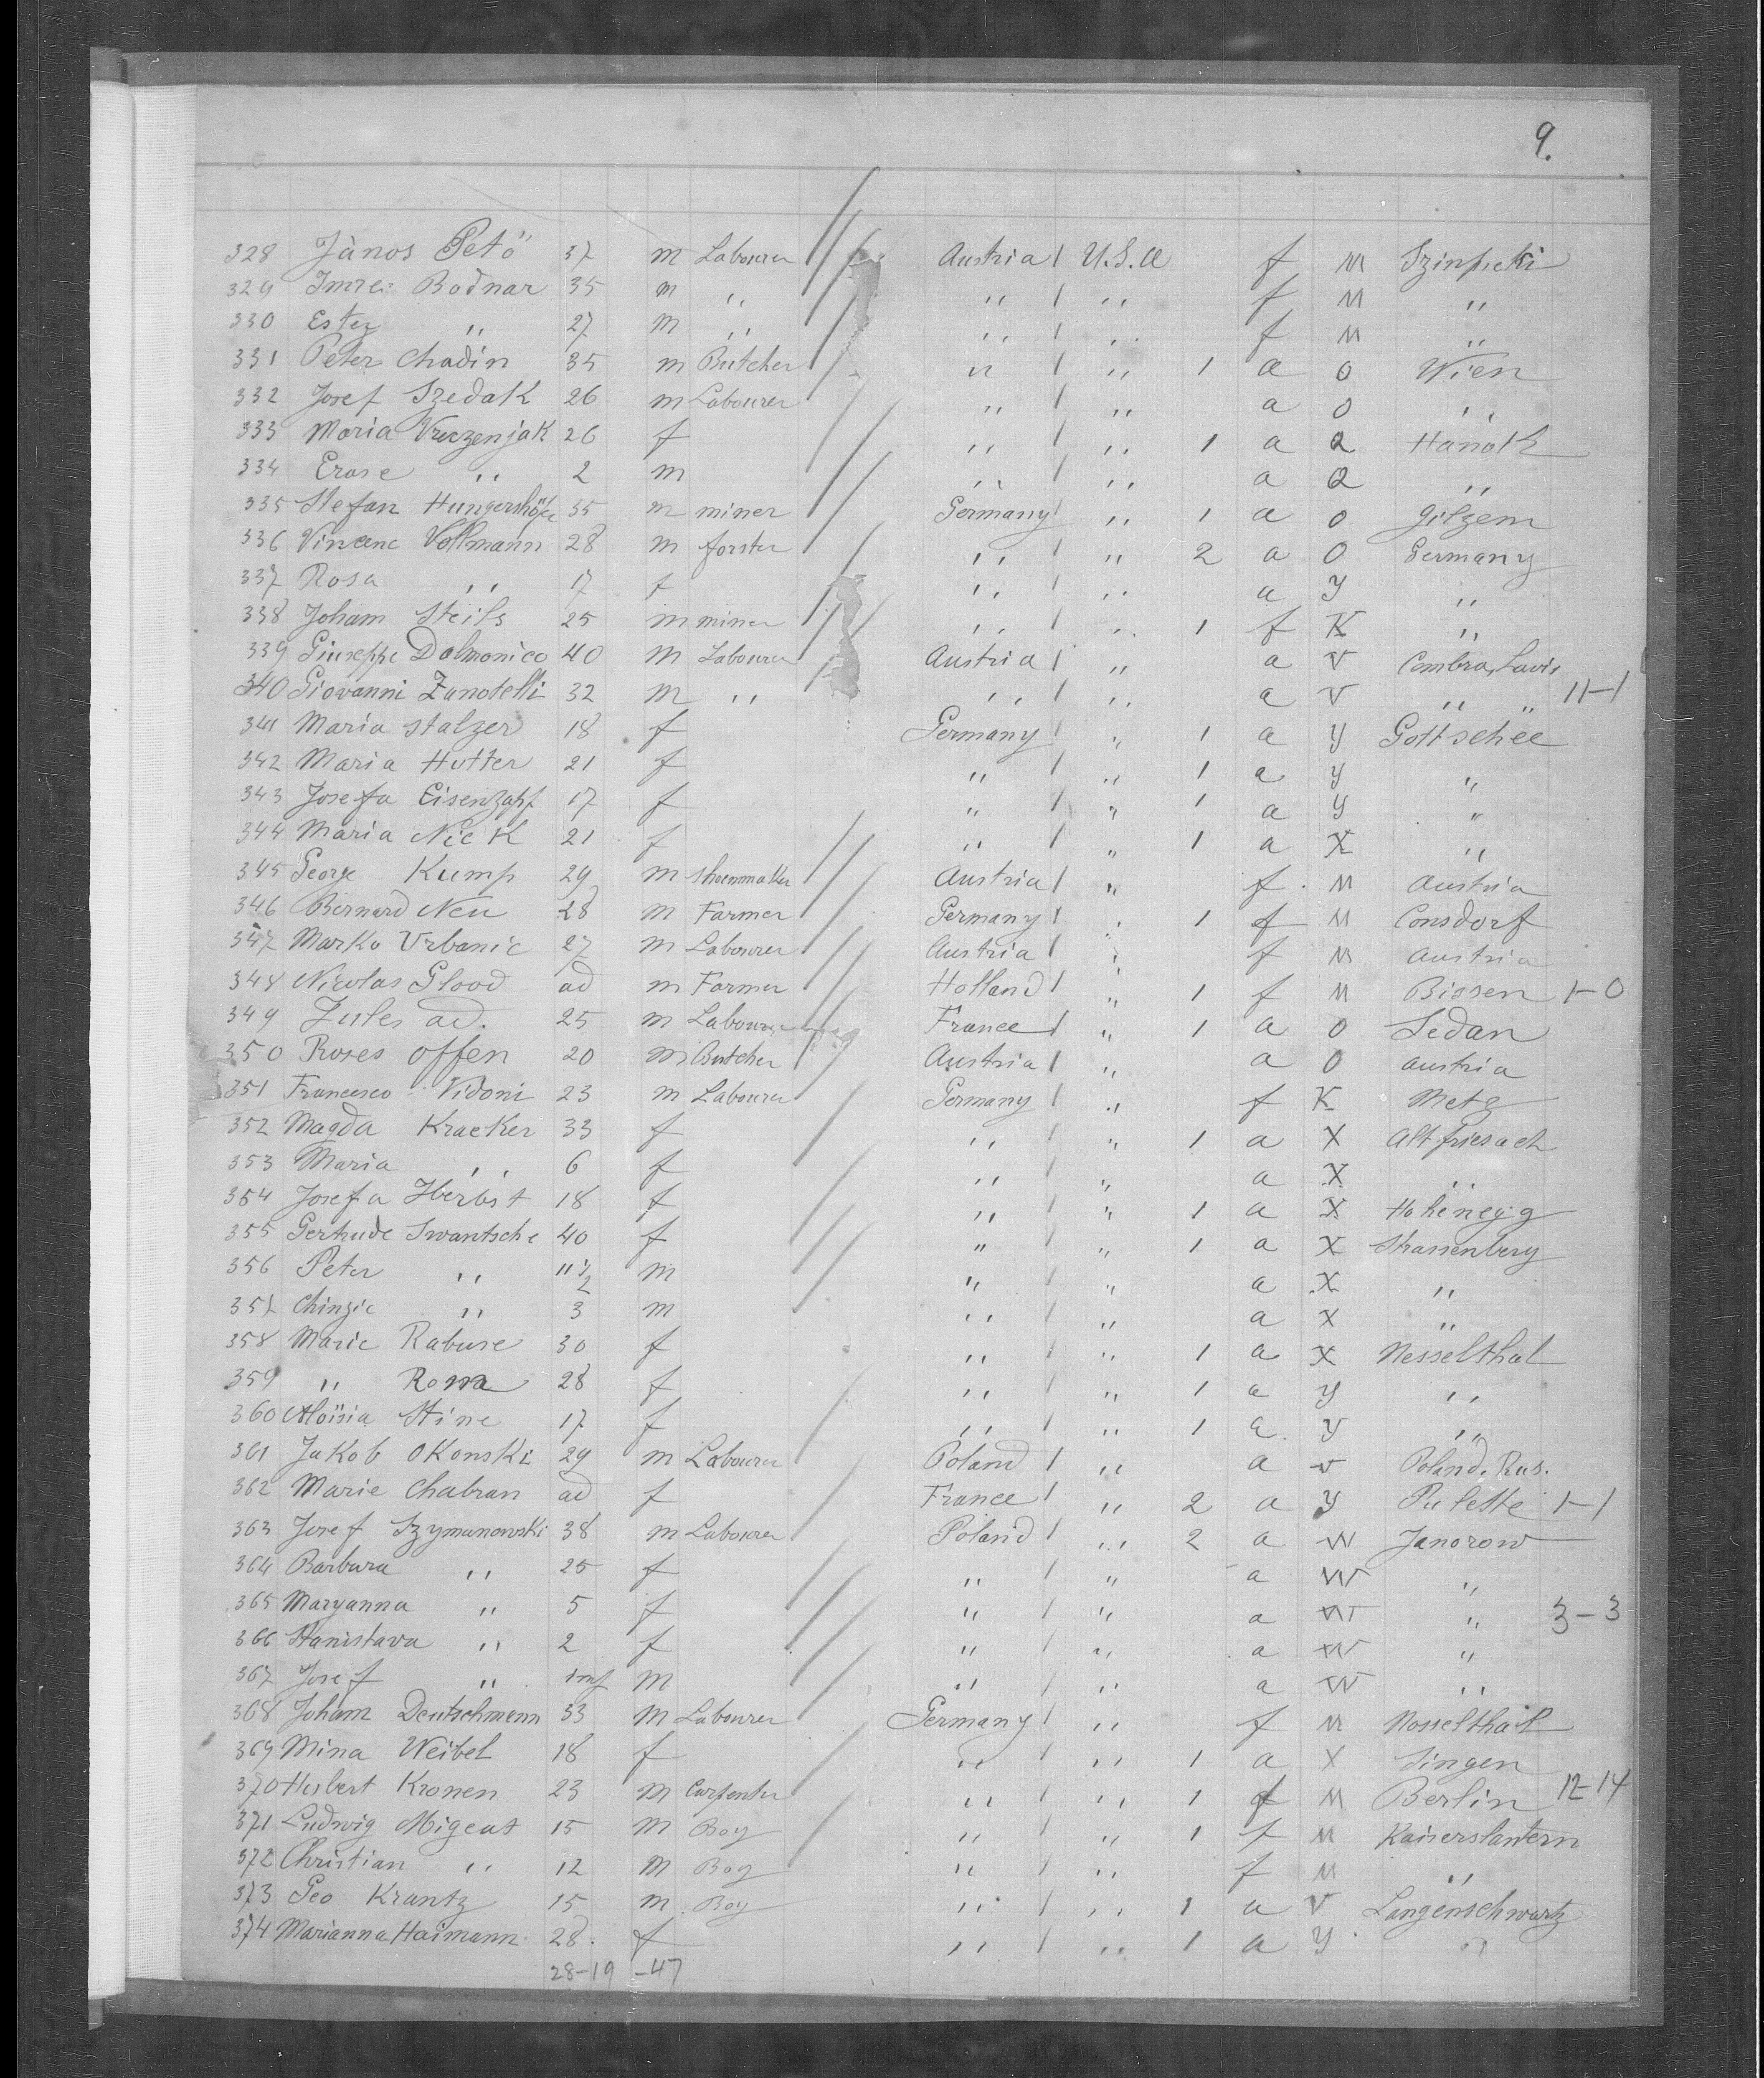 9.
328 János Petö 37 m Labourer Austria / U.S.A f M Szinpseki
329 Imre Bodnar 35 m ,, ,, / ,, f M ,,
330 Estez ,, 27 m ,, ,, / ,, f M ,,
331 Peter Chadin 35 m Butcher ,, / ,, 1 a O Wien
332 Josef Szedak 26 m Labourer ,, / ,, a O ,,
333 Maria Vreczenjak 26 f ,, / ,, 1 a Q Hanok
334 Erose ,, 2 m ,, / ,, a Q ,,
335 Stefan Hungershöfer 35 m miner Germany / ,, 1 a O Gilzem
336 Vinzenc Vollmann 28 m forster ,, / ,, 2 a O Germany
337 Rosa ,, 17 f ,, / ,, a Y ,,
338 Joham Steils 25 m miner ,, / ,, 1 f K ,,
339 Giuseppe Dalmonico 40 m Labourer Austria / ,, a V Cembra, Lavis
340 Giovanni Zanotelli 32 m ,, ,, / ,, a V ,, ,, 11-1
341 Maria Stalzer 18 f Germany / ,, 1 a Y Gottschee
342 Maria Hutter 21 f ,, / ,, 1 a Y ,,
343 Josefa Eisenzapf 17 f ,, / ,, 1 a Y ,,
344 Maria Nick 21 f ,, / ,, 1 a X ,,
345 George Kump 29 m Shoemmaker Austria / ,, f M Austria
346 Bernard Neu 28 m Farmer Germany / ,, 1 f M Consdorf
347 Marko Vrbanic 27 m Labourer Austria / ,, f M Austria
348 Nicolas Glood ad m Farmer Holland / ,, 1 f M Bissen 1-0
349 Jules ad. 25 m Labourer France / ,, 1 a O Sedan
350 Roses Offen 20 m Butcher Austria / ,, a O Austria
351 Francesco Vidoni 23 m Labourer Germany / ,, f K Metz
352 Magda Kracker 33 f ,, / ,, 1 a X Altfriesach
353 Maria ,, 6 f ,, / ,, a X ,,
354 Josefa Herbst 18 f ,, / ,, 1 a X Hohenegg
355 Gertrude Swantsche 40 f ,, / ,, 1 a X Strassenberg
356 Peter ,, 11½ m ,, / ,, a X ,,
357 Chinzic ,, 3 m ,, / ,, a X ,,
358 Marie Rabuse 30 f ,, / ,, 1 a X Nesselthal
359 ,, Roma 28 f ,, / ,, 1 a Y ,,
360 Aloïsia Stine 17 f ,, / ,, 1 a Y ,,
361 Jakob Okonski 29 m Labourer Poland / ,, a V Poland. Rus.
362 Marie Chabran ad f France / ,, 2 a Y Pulette 1-1
363 Josef Szymanowski 38 m Labourer Poland / ,, 2 a W Janorow
364 Barbara ,, 25 f ,, / ,, a W ,,
365 Maryanna ,, 5 f ,, / ,, a W ,, 3-3
366 Stanislava ,, 2 f ,, / ,, a W ,,
367 Josef ,, inf m ,, / ,, a W ,,
368 Joham Deutschmann 33 m Labourer Germany / ,, f M Nosselthal
369 Mina Weibel 18 f ,, / ,, 1 a X Singen
370 Hubert Kronen 23 m Carpenter ,, / ,, 1 f M Berlin 12-14
371 Ludwig Migeat 15 m Boy ,, / ,, 1 f M Kaiserslautern
372 Christian ,, 12 m Boy ,, / ,, f M ,,
373 Geo Krantz 15 m Boy ,, / ,, 1 a V Langenschwartz
374 Marianna Haimann 28. f ,, / ,, 1 a Y ,,
28-19 -47